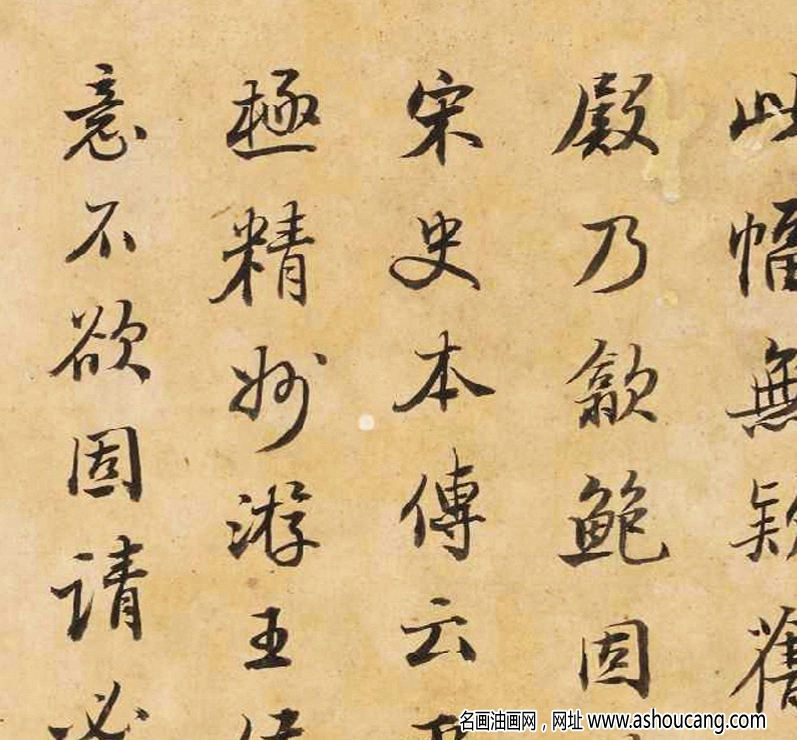 此幅無欵舊
殿乃歙鮑固
宋史本傳云
極精妙游王
意不欲固請必
名画油画网，网址 www.ashoucang.com